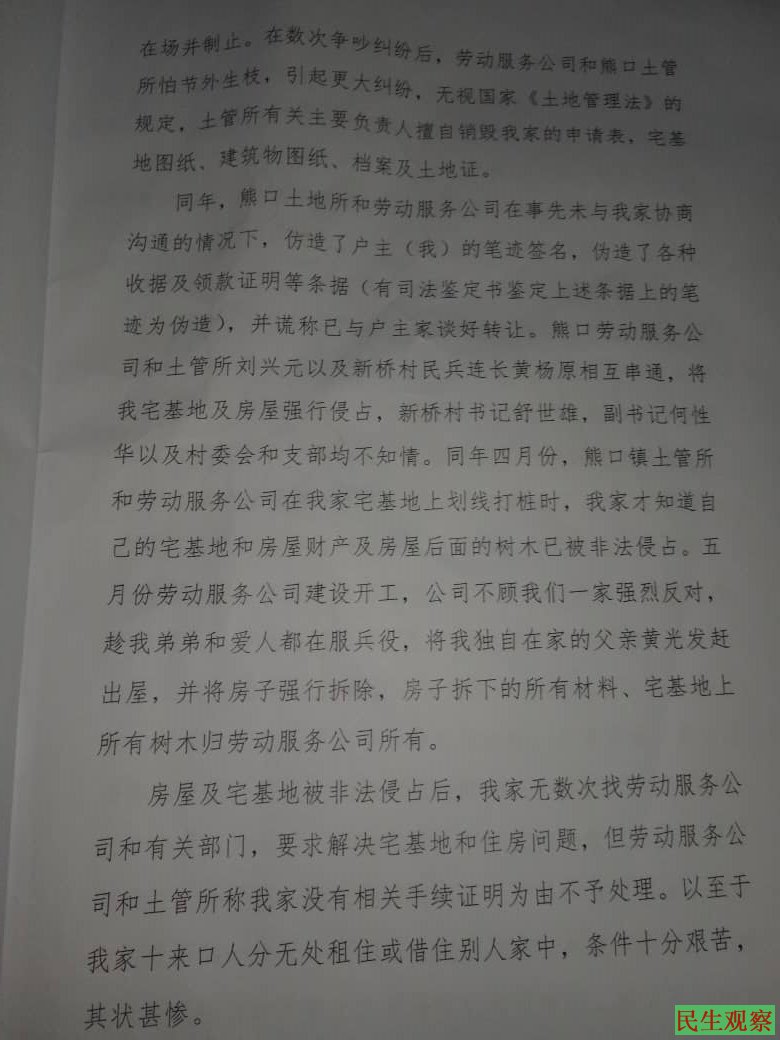 在场并制止。在数次争吵纠纷后，劳动服务公司和熊口土管
所怕节外生枝，引起更大纠纷，无视国家《土地管理法》的
规定，土管所有关主要负责人擅自销毁我家的申请表，宅基
地图纸、建筑物图纸、档案及土地证。
同年，熊口土地所和劳动服务公司在事先未与我家协商
沟通的情况下，仿造了户主（我）的笔迹签名，伪造了各种
收据及领款证明等条据（有司法鉴定书鉴定上述条据上的笔
迹为伪造），并谎称已与户主家谈好转让。熊口劳动服务公
司和土管所刘兴元以及新桥村民兵连长黄杨原相互串通，将
我宅基地及房屋强行侵占，新桥村书记舒世雄，副书记何性
华以及村委会和支部均不知情。同年四月份，熊口镇土管所
和劳动服务公司在我家宅基地上划线打桩时，我家才知道自
己的宅基地和房屋财产及房屋后面的树木已被非法侵占。五
月份劳动服务公司建设开工，公司不顾我们一家强烈反对，
趁我弟弟和爱人都在服兵役，将我独自在家的父亲黄光发赶
出屋，并将房子强行拆除，房子拆下的所有材料、宅基地上
所有树木归劳动服务公司所有。
房屋及宅基地被非法侵占后，我家无数次找劳动服务公
司和有关部门，要求解决宅基地和住房问题，但劳动服务公
司和土管所称我家没有相关手续证明为由不予处理。以至于
我家十来口人分无处租住或借住别人家中，条件十分艰苦，
其状甚惨。
民生观察